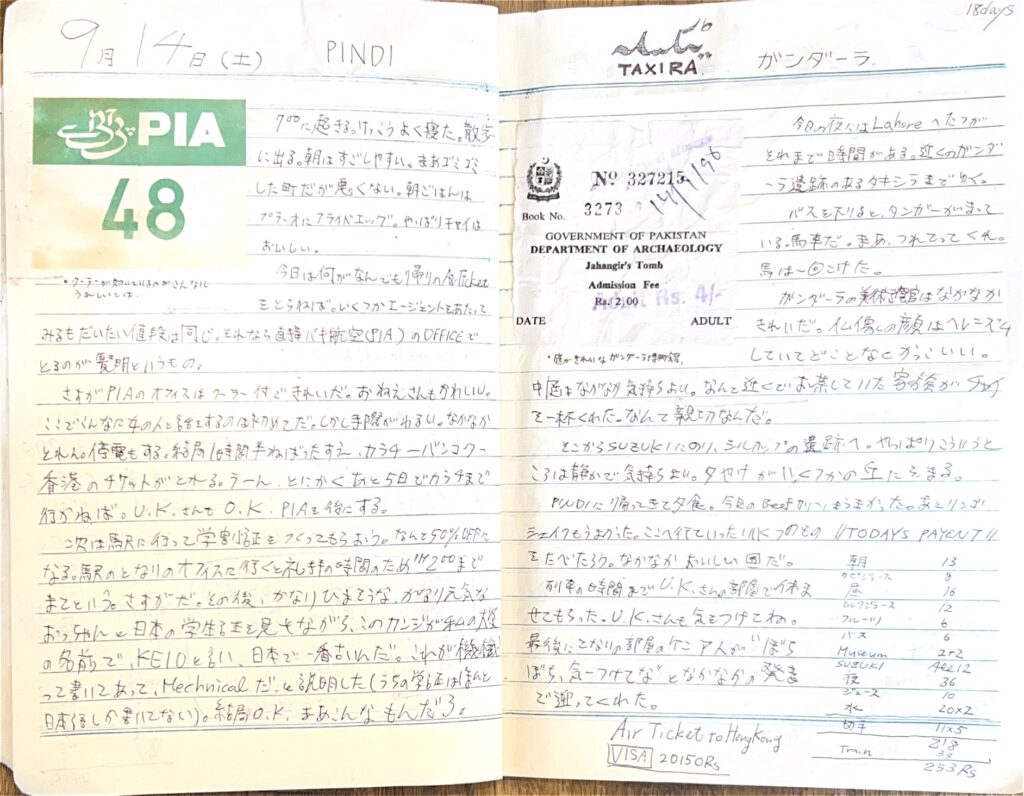 9月14日(土) PINDI
PIA
48
7°°に起きる。けっこうよく寝た。散歩
に出る。朝はすごしやすい。まあゴミゴミ
した町だが悪くない。朝ごはんは
プラーオにフライドエッグ。やっぱりチャイは
おいしい。
今日は何がなんでも帰りの航ticket
・クーラーが
うれしいとは。
をとらねば。いくつかエージェントをあたって
みるもだいたい値段は同じ。それなら直接パキ航空(PIA)のOFFICEで
とるのが賢明というもの。
さすがPIAのオフィスはクーラー付できれいだ。おねえさんもかわいい。
ここでこんなに女の人と話をするのは初めてだ。しかし手際がわるい。なかなか
とれん。停電もする。結局1時間半ねばったすえ、カラチーバンコクー
香港のチケットがとれる。うーん、とにかくあと5日でカラチまで
行かねば。U.K.さんもO.K. PIAを後にする。
次は駅に行って学割証をつくってもらおう。なんと50%OFFに
なる。駅のとなりのオフィスに行くと礼拝の時間のため 2°°まで
まてという。さすがだ。その後、かなりひまそうな、かなり元気な
おっちゃんに日本の学生証を見せながら、このカンジが私の大学
の名前で、KEIOと言い、日本で一番古いんだ。これが機械
って書いてあって、Mechnicalだ。と説明した(うちの学生証はほんと
日本語しか書いてない)。結局O.K. まあこんなもんだろ。
18days
TAXIRA. ガンダーラ
今日の夜にはLahoreへたつが
それまで時間がある。近くのガンダ
ーラ遺跡のあるタキシラまでゆく。
バスをおりると、タンガーがまって
いる。馬車だ。まあ、つれてってくれ。
馬は一回こけた。
ガンダーラの美術館はなかなか
きれいだ。仏像の顔はヘレニズム
していてどことなくかっこいい。
No 327215
Book No. 3273
14/9/96
GOVERNMENT OF PAKISTAN
DEPARTMENT OF ARCHAEOLOGY
Jahangir's Tomb
Admission Fee
Rs. 2.00
Rs. 4/-
DATE ADULT
・庭がきれいなガンダーラ博物館。
中庭はなかなか気持ちよい。なんと近くでお茶していた家族が チャイ
を一杯くれた。なんて親切なんだ。
そこからSUZUKIにのり、シルカップの遺跡へ。やっぱりこういうと
ころは静かで気持ちよい。夕やけがいくつかの丘にそまる。
PINDIに帰ってきて夕食。今日のBeef うまかった。あとリンゴ
シェイクもうまかった。ここへ来ていったいいくつのもの
をたべたろう。なかなかおいしい国だ。
列車の時間までU.K.さんの部屋で休ま
せてもらった。U.K.さんも気をつけてね。
最後にとなりの部屋のケニア人が“ぼち
ぼち、気つけてな”となかなかの発音
で送ってくれた。
Air Ticket to HongKong
VISA 20150Rs
//TODAYS PAYENT//
朝 13
昼 16
ミルクジュース 12
フルーツ 6
バス 6
Museum 2+2
SUZUKI
夜 36
ジュース 10
水 20×2
切手 11×5
218
Train 35
253 Rs